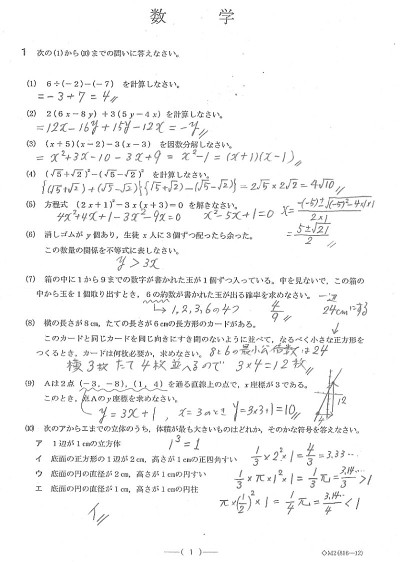 数 学
1 次の(1)から(10)までの問いに答えなさい。
(1) 6÷(-2)-(-7) を計算しなさい。
= -3+7 = 4
(2) 2(6x-8y)+3(5y-4x) を計算しなさい。
= 12x-16y+15y-12x = -y
(3) (x+5)(x-2)-3(x-3) を因数分解しなさい。
= x²+3x-10-3x+9 = x²-1 = (x+1)(x-1)
(4) (√5+√2)²-(√5-√2)² を計算しなさい。
{(√5+√2)+(√5-√2)}{(√5+√2)-(√5-√2)} = 2√5×2√2 = 4√10
(5) 方程式 (2x+1)²-3x(x+3)=0 を解きなさい。
4x²+4x+1-3x²-9x=0 x²-5x+1=0 x= -(-5)±√(-5)²-4×1×1 / 2×1
= 5±√21 / 2
(6) 消しゴムが y 個あり，生徒 x 人に3個ずつ配ったら余った。
この数量の関係を不等式に表しなさい。
y > 3x
(7) 箱の中に1から9までの数字が書かれた玉が1個ずつ入っている。中を見ないで，この箱の
中から玉を1個取り出すとき，6の約数が書かれた玉が出る確率を求めなさい。
→ 1,2,3,6の4つ 4/9
一辺
24cmにする
(8) 横の長さが8cm，たての長さが6cmの長方形のカードがある。
このカードと同じカードを同じ向きにすき間のないように並べて，なるべく小さな正方形を
つくるとき，カードは何枚必要か，求めなさい。 8と6の最小公倍数は24
横3枚 たて4枚 並べるので 3×4=12枚
(9) Aは2点(-3，-8)，(1，4)を通る直線上の点で，x座標が3である。
このとき，点Aのy座標を求めなさい。
y=3x+1, x=3のとき y=3×3+1=10
12
4
(10) 次のアからエまでの立体のうち，体積が最も大きいものはどれか，そのかな符号を答えなさい。
ア 1辺が1cmの立方体 1³=1
イ 底面の正方形の1辺が2cm，高さが1cmの正四角すい 1/3×2²×1=4/3=1.33…
ウ 底面の円の直径が2cm，高さが1cmの円すい 1/3×π×1²×1=1/3π=3.14…/3
エ 底面の円の直径が1cm，高さが1cmの円柱 π×(1/2)²×1=1/4π=3.14…/4<1
イ
―( 1 )―
◇M2(616—12)